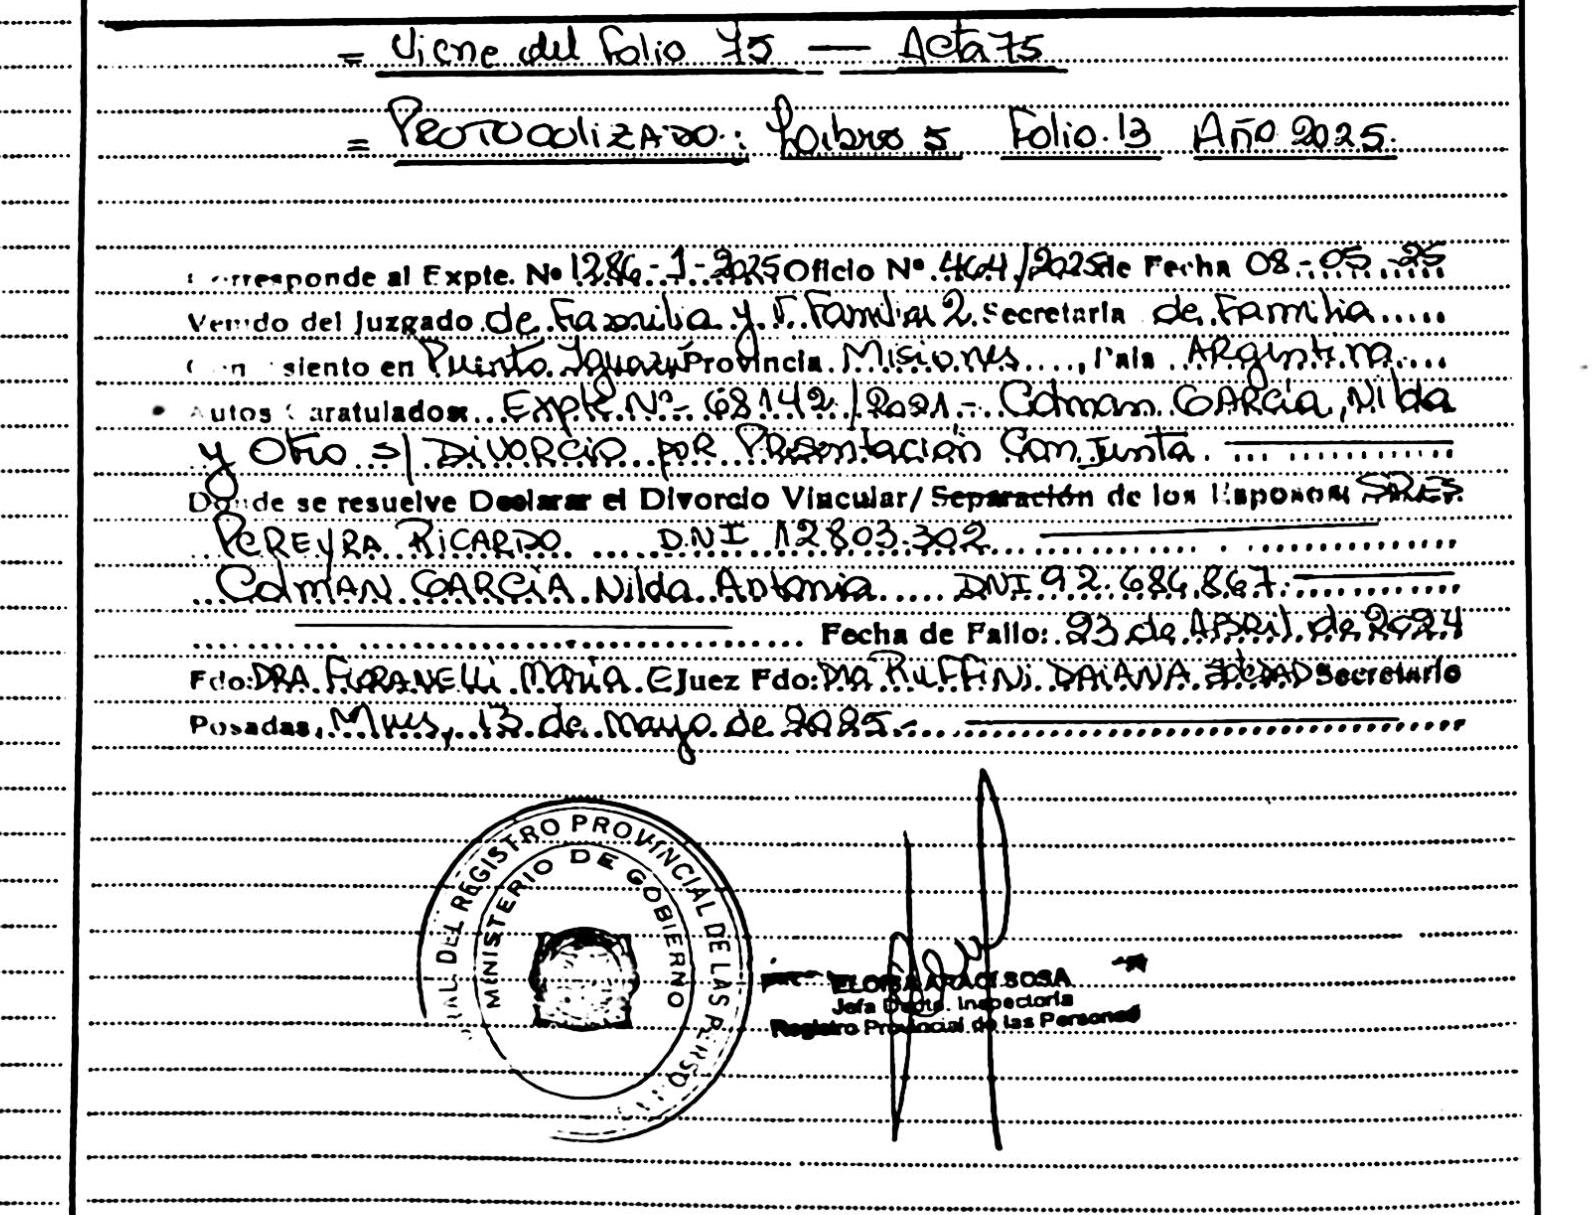 = Viene del Folio 75 — Acta 75
= Protocolizado: Libro 5 Folio.13 Año 2025.
Corresponde al Expte. Nº 1286-1-2025 Oficio Nº 464/2025 de Fecha 08-05-25
Venido del Juzgado de Familia y V. Familiar 2. Secretaria de Familia
Con asiento en Puerto Iguazú Provincia Misiones, País Argentina
Autos Caratulados Expte Nº 68142/2021- Colman GARCIA, Nilda
y Otro s/ Divorcio por Presentación Conjunta.
Donde se resuelve Declarar el Divorcio Vincular/ Separación de los Esposos: SRES
PEREYRA RICARDO DNI 12803.302
Colman GARCIA Nilda Antonia DNI 92.686.867.
Fecha de Fallo: 23 de Abril de 2024
Fdo: DRA. FIORANELLI MARIA. E Juez Fdo: Dra RUFFINI DAIANA Secretario
Posadas, Mnes, 13 de mayo de 2025.-
DEL REGISTRO PROVINCIAL DE LAS PERSO
MINISTERIO DE GOBIERNO
ELOISA ARACI SOSA
Jefa Depto. Inspectoria
Registro Provincial de las Personas